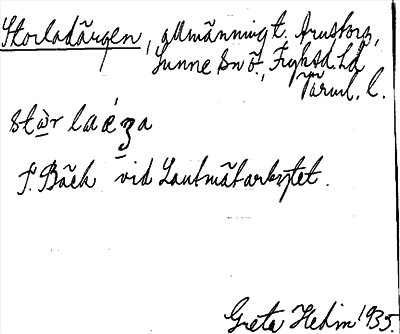 Storladängen, allmänning t. Arnstorp,
Sunne sn ö., Fryksd. hd
Värml. l.
stὼrlaéʒa
f. Bäck vid Lantmätarbytet.
Greta Hedin 1935.